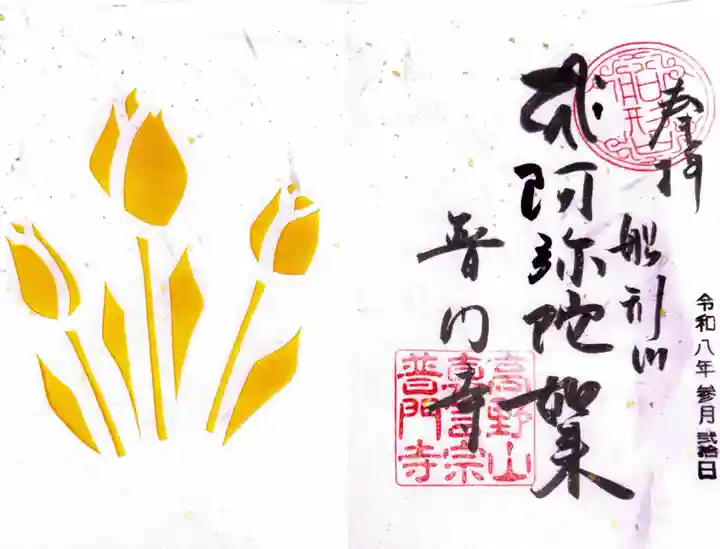 奉拝
船形山
阿弥陀如来
普門寺
高野山
真言宗
普門寺
令和八年 参月 弐拾日